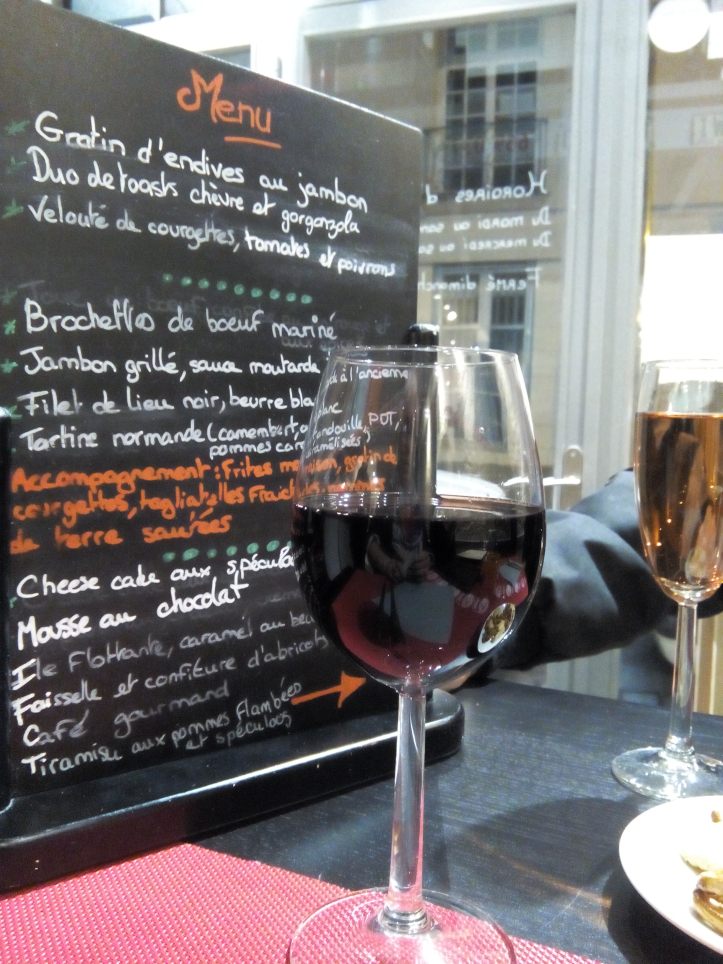 Menu
Gratin d'endives au jambon
Duo de toasts chèvre et gorgonzola
Velouté de courgettes, tomates et poivrons
Brochettes de boeuf mariné
Jambon grillé, sauce moutarde à l'ancienne
Filet de lieu noir, beurre blanc
Tartine normande (camembert, andouille,
pommes caramélisées
POT,
Accompagnement : Frites maison, gratin de
courgettes, tagliatelles Fraîches, pommes
de terre sautées
Cheese cake aux spéculoos
Mousse au chocolat
Ile Flottante, caramel au beu
Faisselle et confiture d'abricots
Café gourmand
Tiramisu aux pommes flambées
et spéculoos
Horaires d
Du mardi au sam
Du mercredi au sa
Fermé dimanch